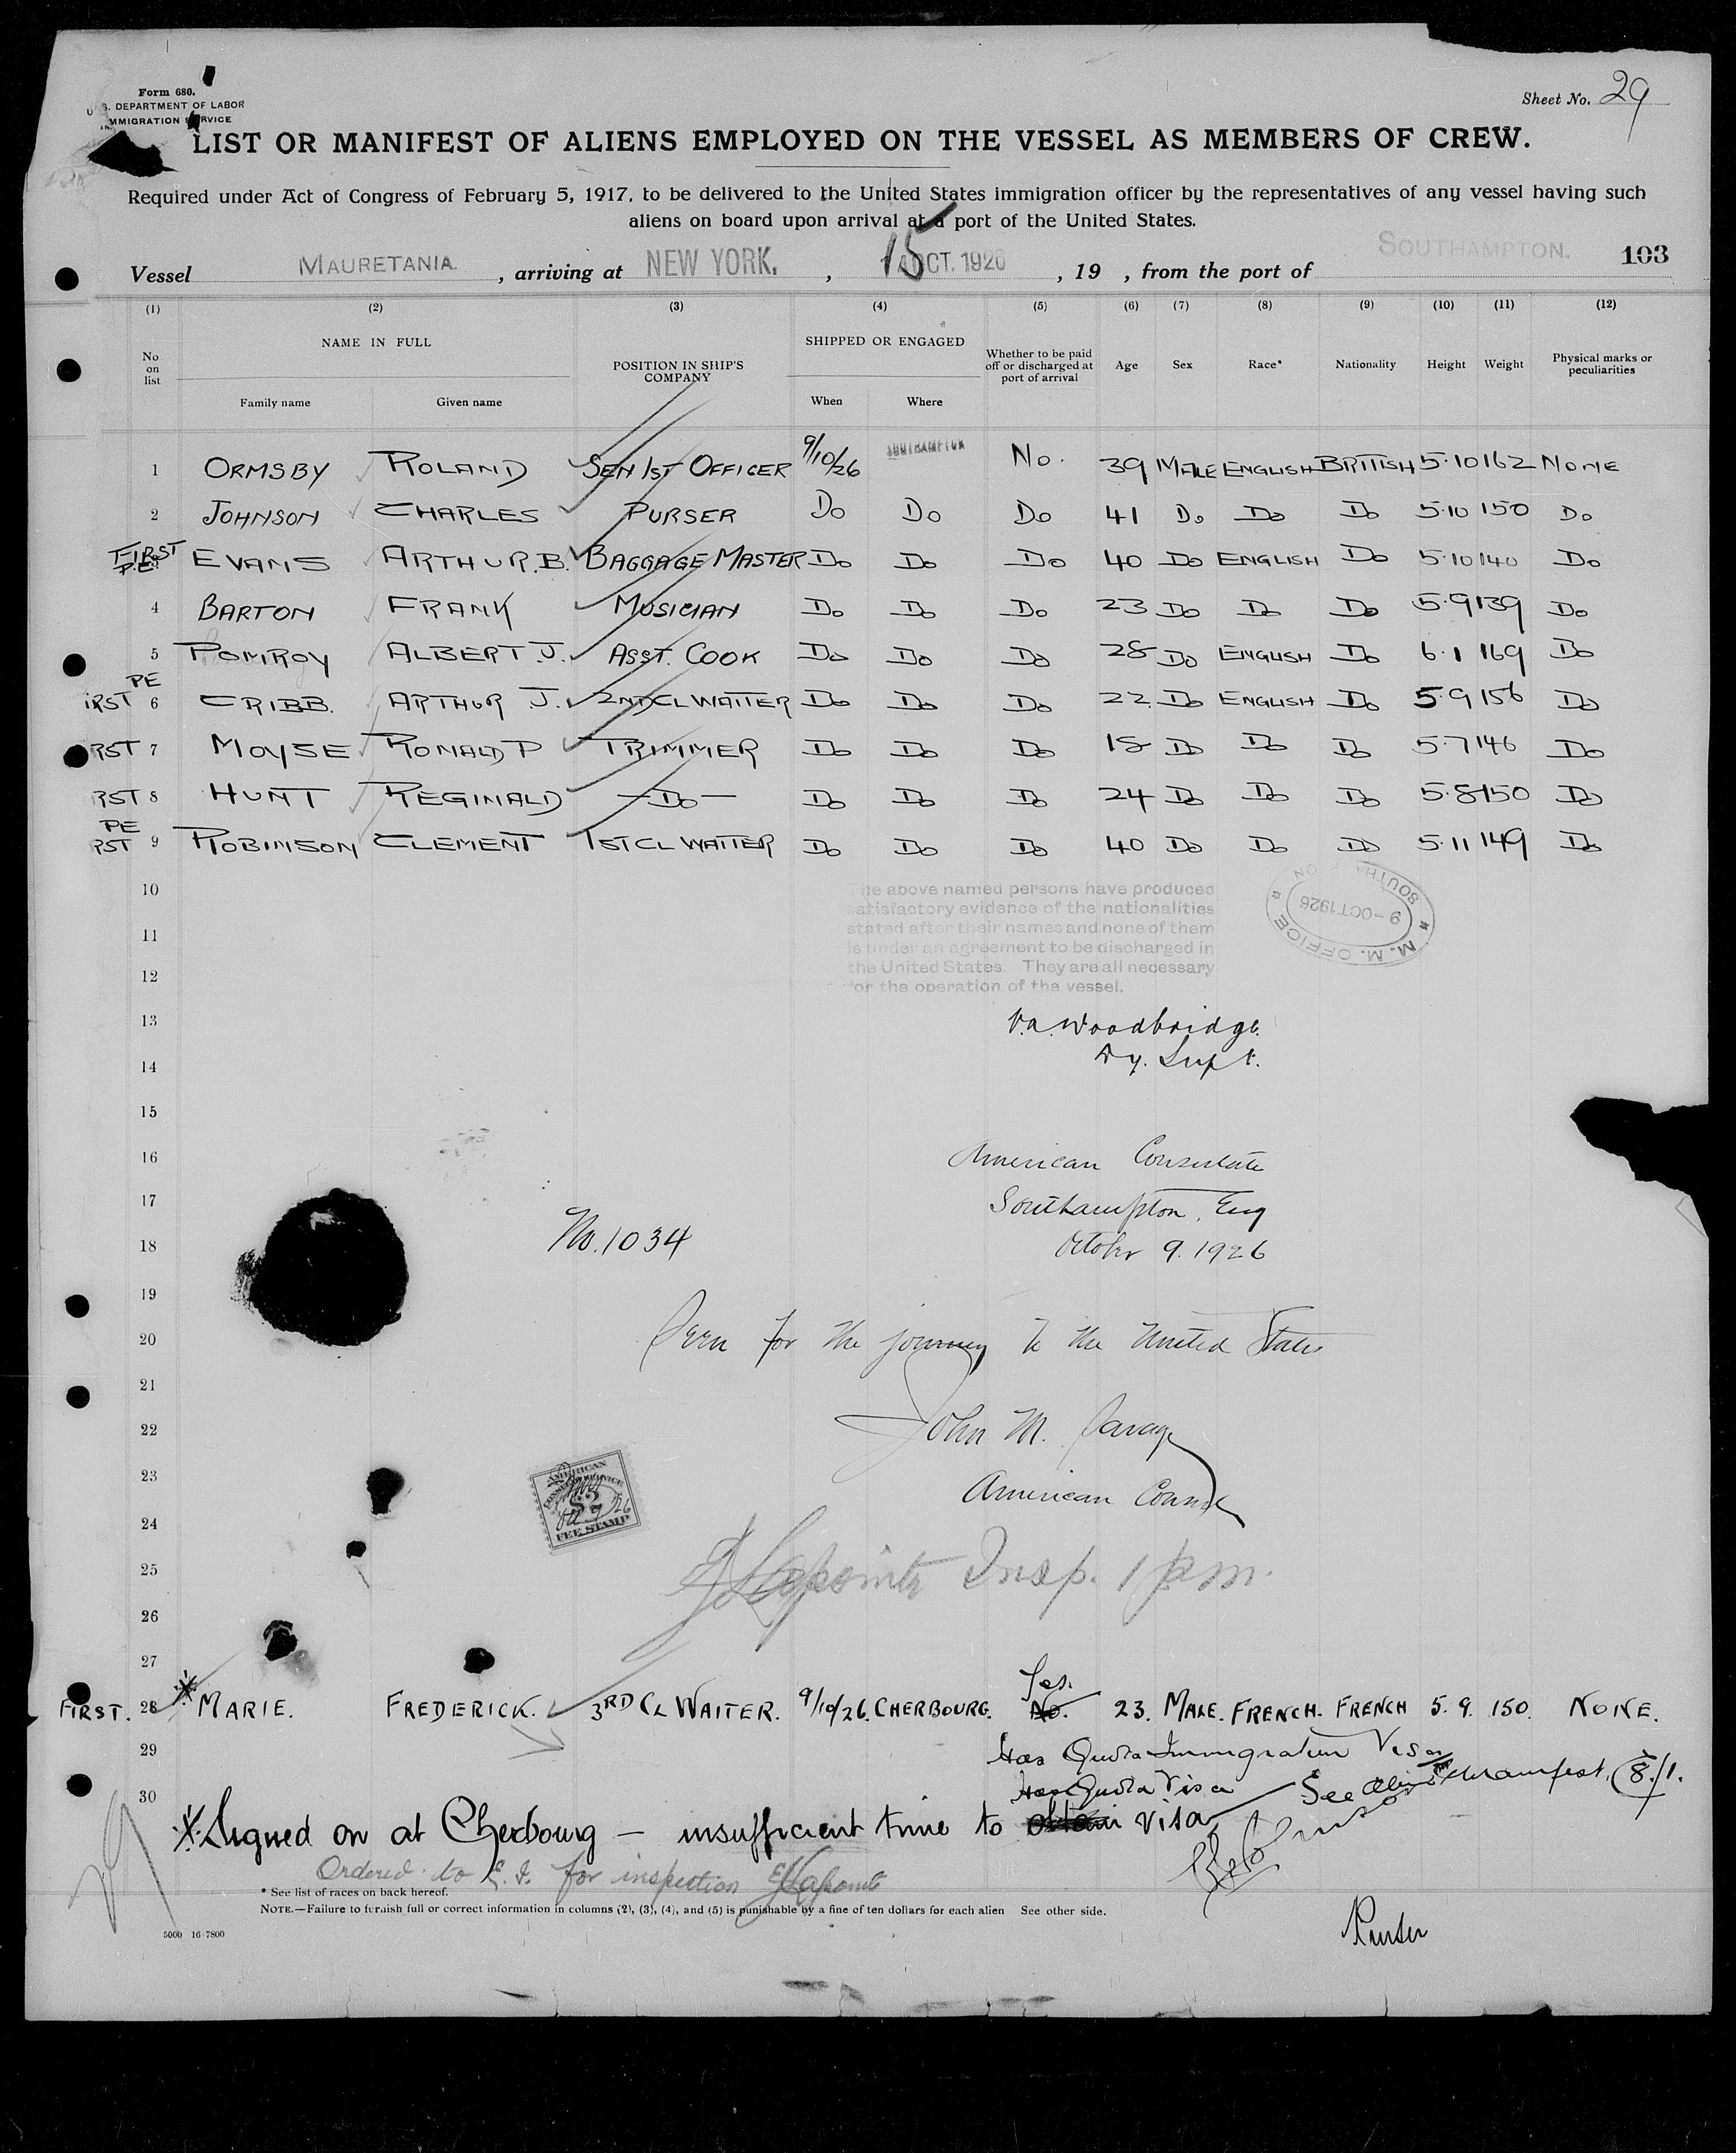 Form 680.
U.S. DEPARTMENT OF LABOR
IMMIGRATION SERVICE
Sheet No. 29
LIST OR MANIFEST OF ALIENS EMPLOYED ON THE VESSEL AS MEMBERS OF CREW.
Required under Act of Congress of February 5, 1917, to be delivered to the United States immigration officer by the representatives of any vessel having such
aliens on board upon arrival at a port of the United States.
Vessel MAURETANIA , arriving at NEW YORK. , 15 OCT. 1926 , 19 , from the port of SOUTHAMPTON. 103
(1) (2) (3) (4) (5) (6) (7) (8) (9) (10) (11) (12)
No on list NAME IN FULL POSITION IN SHIP'S COMPANY SHIPPED OR ENGAGED Whether to be paid off or discharged at port of arrival Age Sex Race* Nationality Height Weight Physical marks or peculiarities
Family name Given name When Where
1 ORMSBY ROLAND SEN 1ST OFFICER 9/10/26 SOUTHAMPTON No. 39 MALE ENGLISH BRITISH 5.10 162 NONE
2 JOHNSON CHARLES PURSER Do Do Do 41 Do Do Do 5.10 150 Do
FIRST P.E. 3 EVANS ARTHUR.B. BAGGAGE MASTER Do Do Do 40 Do ENGLISH Do 5.10 140 Do
4 BARTON FRANK MUSICIAN Do Do Do 23 Do Do Do 5.9 139 Do
5 POMROY ALBERT.J. ASST. COOK Do Do Do 28 Do ENGLISH Do 6.1 169 Do
PE
IRST 6 CRIBB. ARTHUR J. 2ND CL WAITER Do Do Do 22 Do ENGLISH Do 5.9 156 Do
RST 7 MOYSE RONALD P TRIMMER Do Do Do 18 Do Do Do 5.7 146 Do
RST 8 HUNT REGINALD —Do— Do Do Do 24 Do Do Do 5.8 150 Do
PE
RST 9 ROBINSON CLEMENT 1ST CL WAITER Do Do Do 40 Do Do Do 5.11 149 Do
10
he above named persons have produced
satisfactory evidence of the nationalities
stated after their names and none of them
is under an agreement to be discharged in
the United States. They are all necessary
for the operation of the vessel.
M.M. OFFICE SOUTHA ON
9-OCT 1926
11
12
13 V.A. Woodbridge.
14 Dy. Supt.
15
16 American Consulate
17 Southampton, Eng
18 No. 1034 October 9. 1926
19
20 Seen for the journey to the United States
21
22 John M. Savage
23 American Consul
AMERICAN
CONSULAR SERVICE
$2
FEE STAMP
24
25 Lapointe Insp. 1 p.m.
26
27 Yes.
FIRST. 28 * MARIE. FREDERICK. 3RD CL WAITER. 9/10/26. CHERBOURG. No. 23. MALE. FRENCH. FRENCH 5. 9. 150. NONE.
29 Has Quota Immigration Visa
30 Has Quota Visa — See Alien Manifest, 8/1.
* Signed on at Cherbourg — insufficient time to obtain visa
Ordered to E.I. for inspection Lapointe
* See list of races on back hereof.
NOTE.—Failure to furnish full or correct information in columns (2), (3), (4), and (5) is punishable by a fine of ten dollars for each alien See other side.
5000 16-7800
Purser